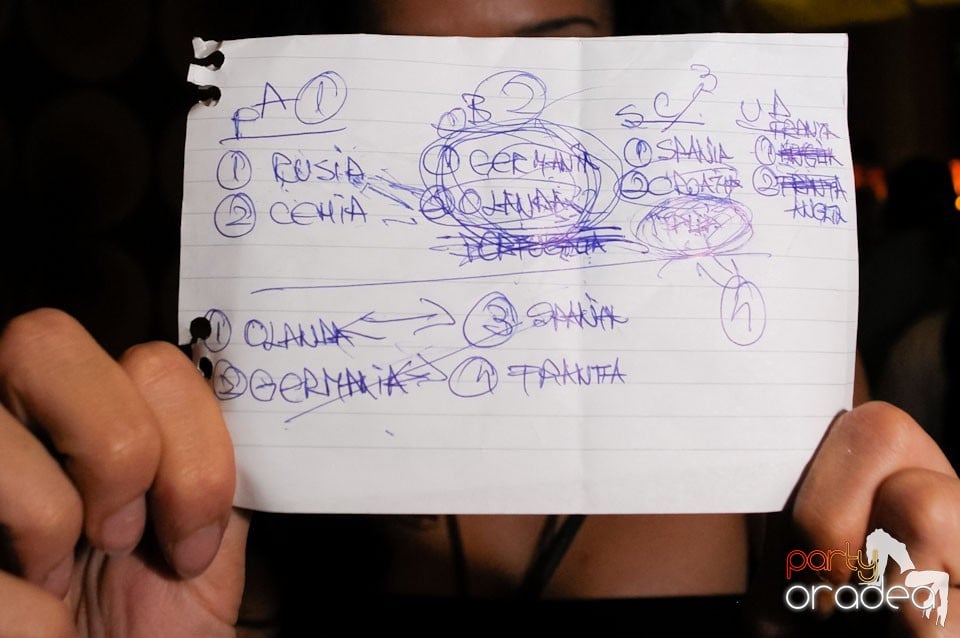 A 1 B 2 C 3 D
P S U
FRANTA
1 RUSIA 1 GERMANIA 1 SPANIA 1 ANGLIA
2 CEHIA 2 OLANDA 2 CROATIA 2 FRANTA
ANGLIA
PORTUGALIA ITALIA
4
1 OLANDA 3 SPANIA
2 GERMANIA 4 FRANTA
party
oradea